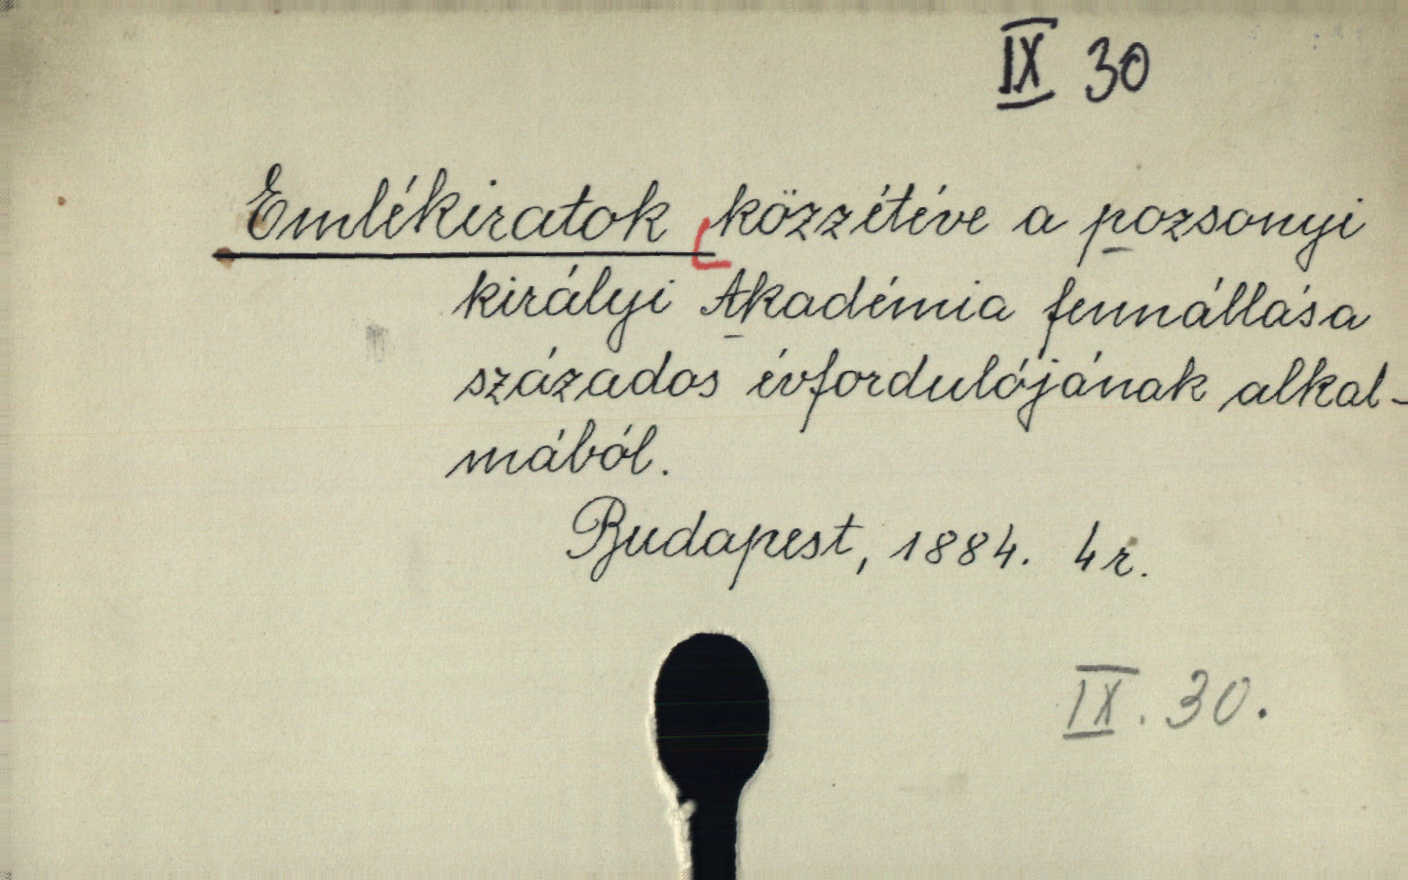 IX 30
Emlékiratok közzétéve a pozsonyi
királyi Akadémia fennállása
százados évfordulójának alkal-
mából.
Budapest, 1884. 4r.
IX. 30.